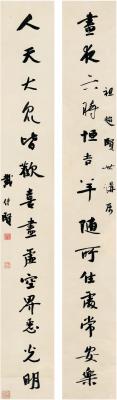 晝夜六時恒吉羊隨所住處常安樂
祖超賢世講屬
人天大眾皆歡喜盡虛空界悉光明
戴傳賢